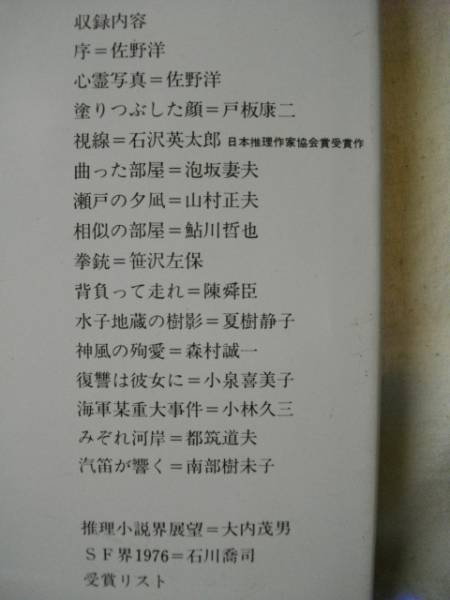 収録内容
序＝佐野洋
心霊写真＝佐野洋
塗りつぶした顔＝戸板康二
視線＝石沢英太郎 日本推理作家協会賞受賞作
曲った部屋＝泡坂妻夫
瀬戸の夕凪＝山村正夫
相似の部屋＝鮎川哲也
拳銃＝笹沢左保
背負って走れ＝陳舜臣
水子地蔵の樹影＝夏樹静子
神風の殉愛＝森村誠一
復讐は彼女に＝小泉喜美子
海軍某重大事件＝小林久三
みぞれ河岸＝都筑道夫
汽笛が響く＝南部樹未子
推理小説界展望＝大内茂男
ＳＦ界1976＝石川喬司
受賞リスト